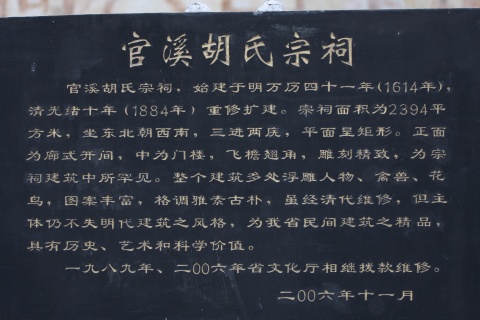 官溪胡氏宗祠
官溪胡氏宗祠，始建于明万历四十一年(1614年)，
清光绪十年(1884年)重修扩建。宗祠面积为2394平
方米，坐东北朝西南，三进两庆，平面呈矩形。正面
为廊式开间，中为门楼，飞檐翘角，雕刻精致，为宗
祠建筑中所罕见。整个建筑多处浮雕人物、禽兽、花
鸟，图案丰富，格调雅素古朴，虽经清代维修，但主
体仍不失明代建筑之风格，为我省民间建筑之精品，
具有历史、艺术和科学价值。
一九八九年、二00六年省文化厅相继拨款维修。
二00六年十一月